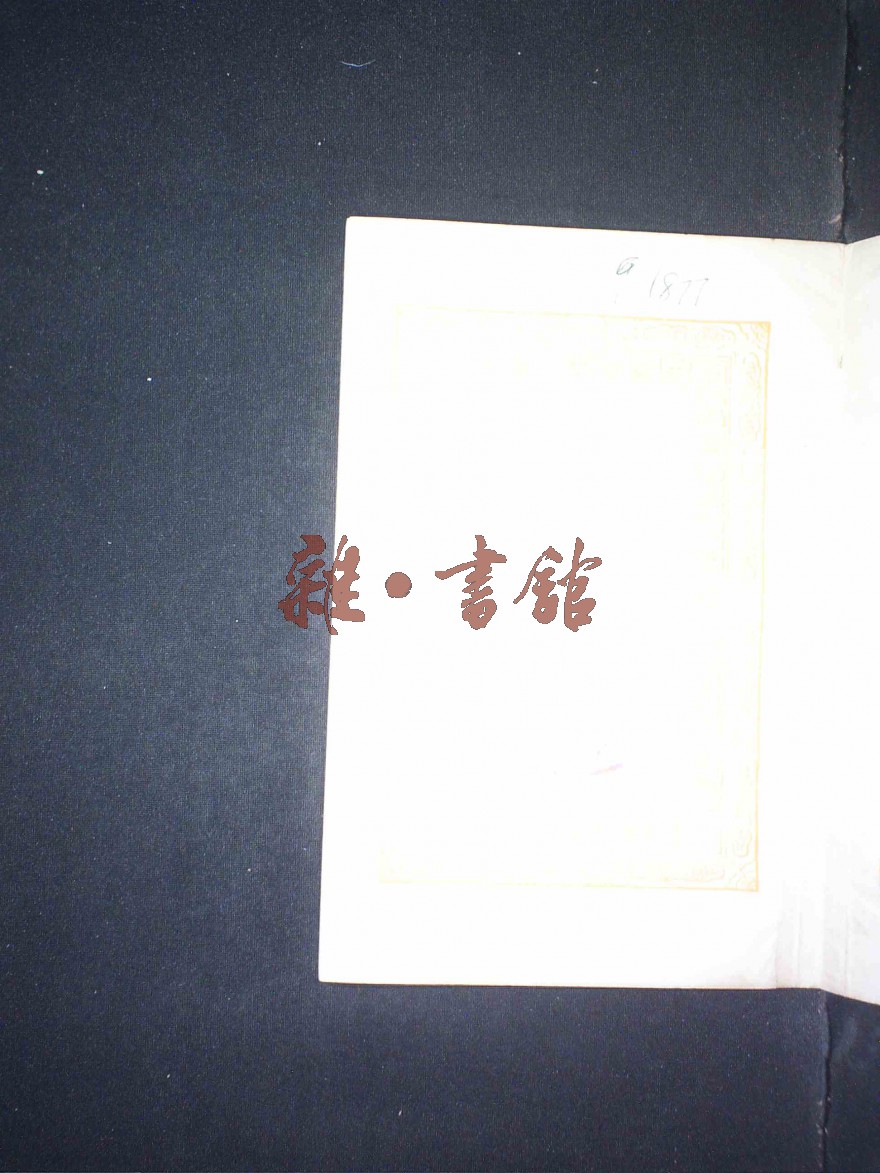 1877
雜·書館